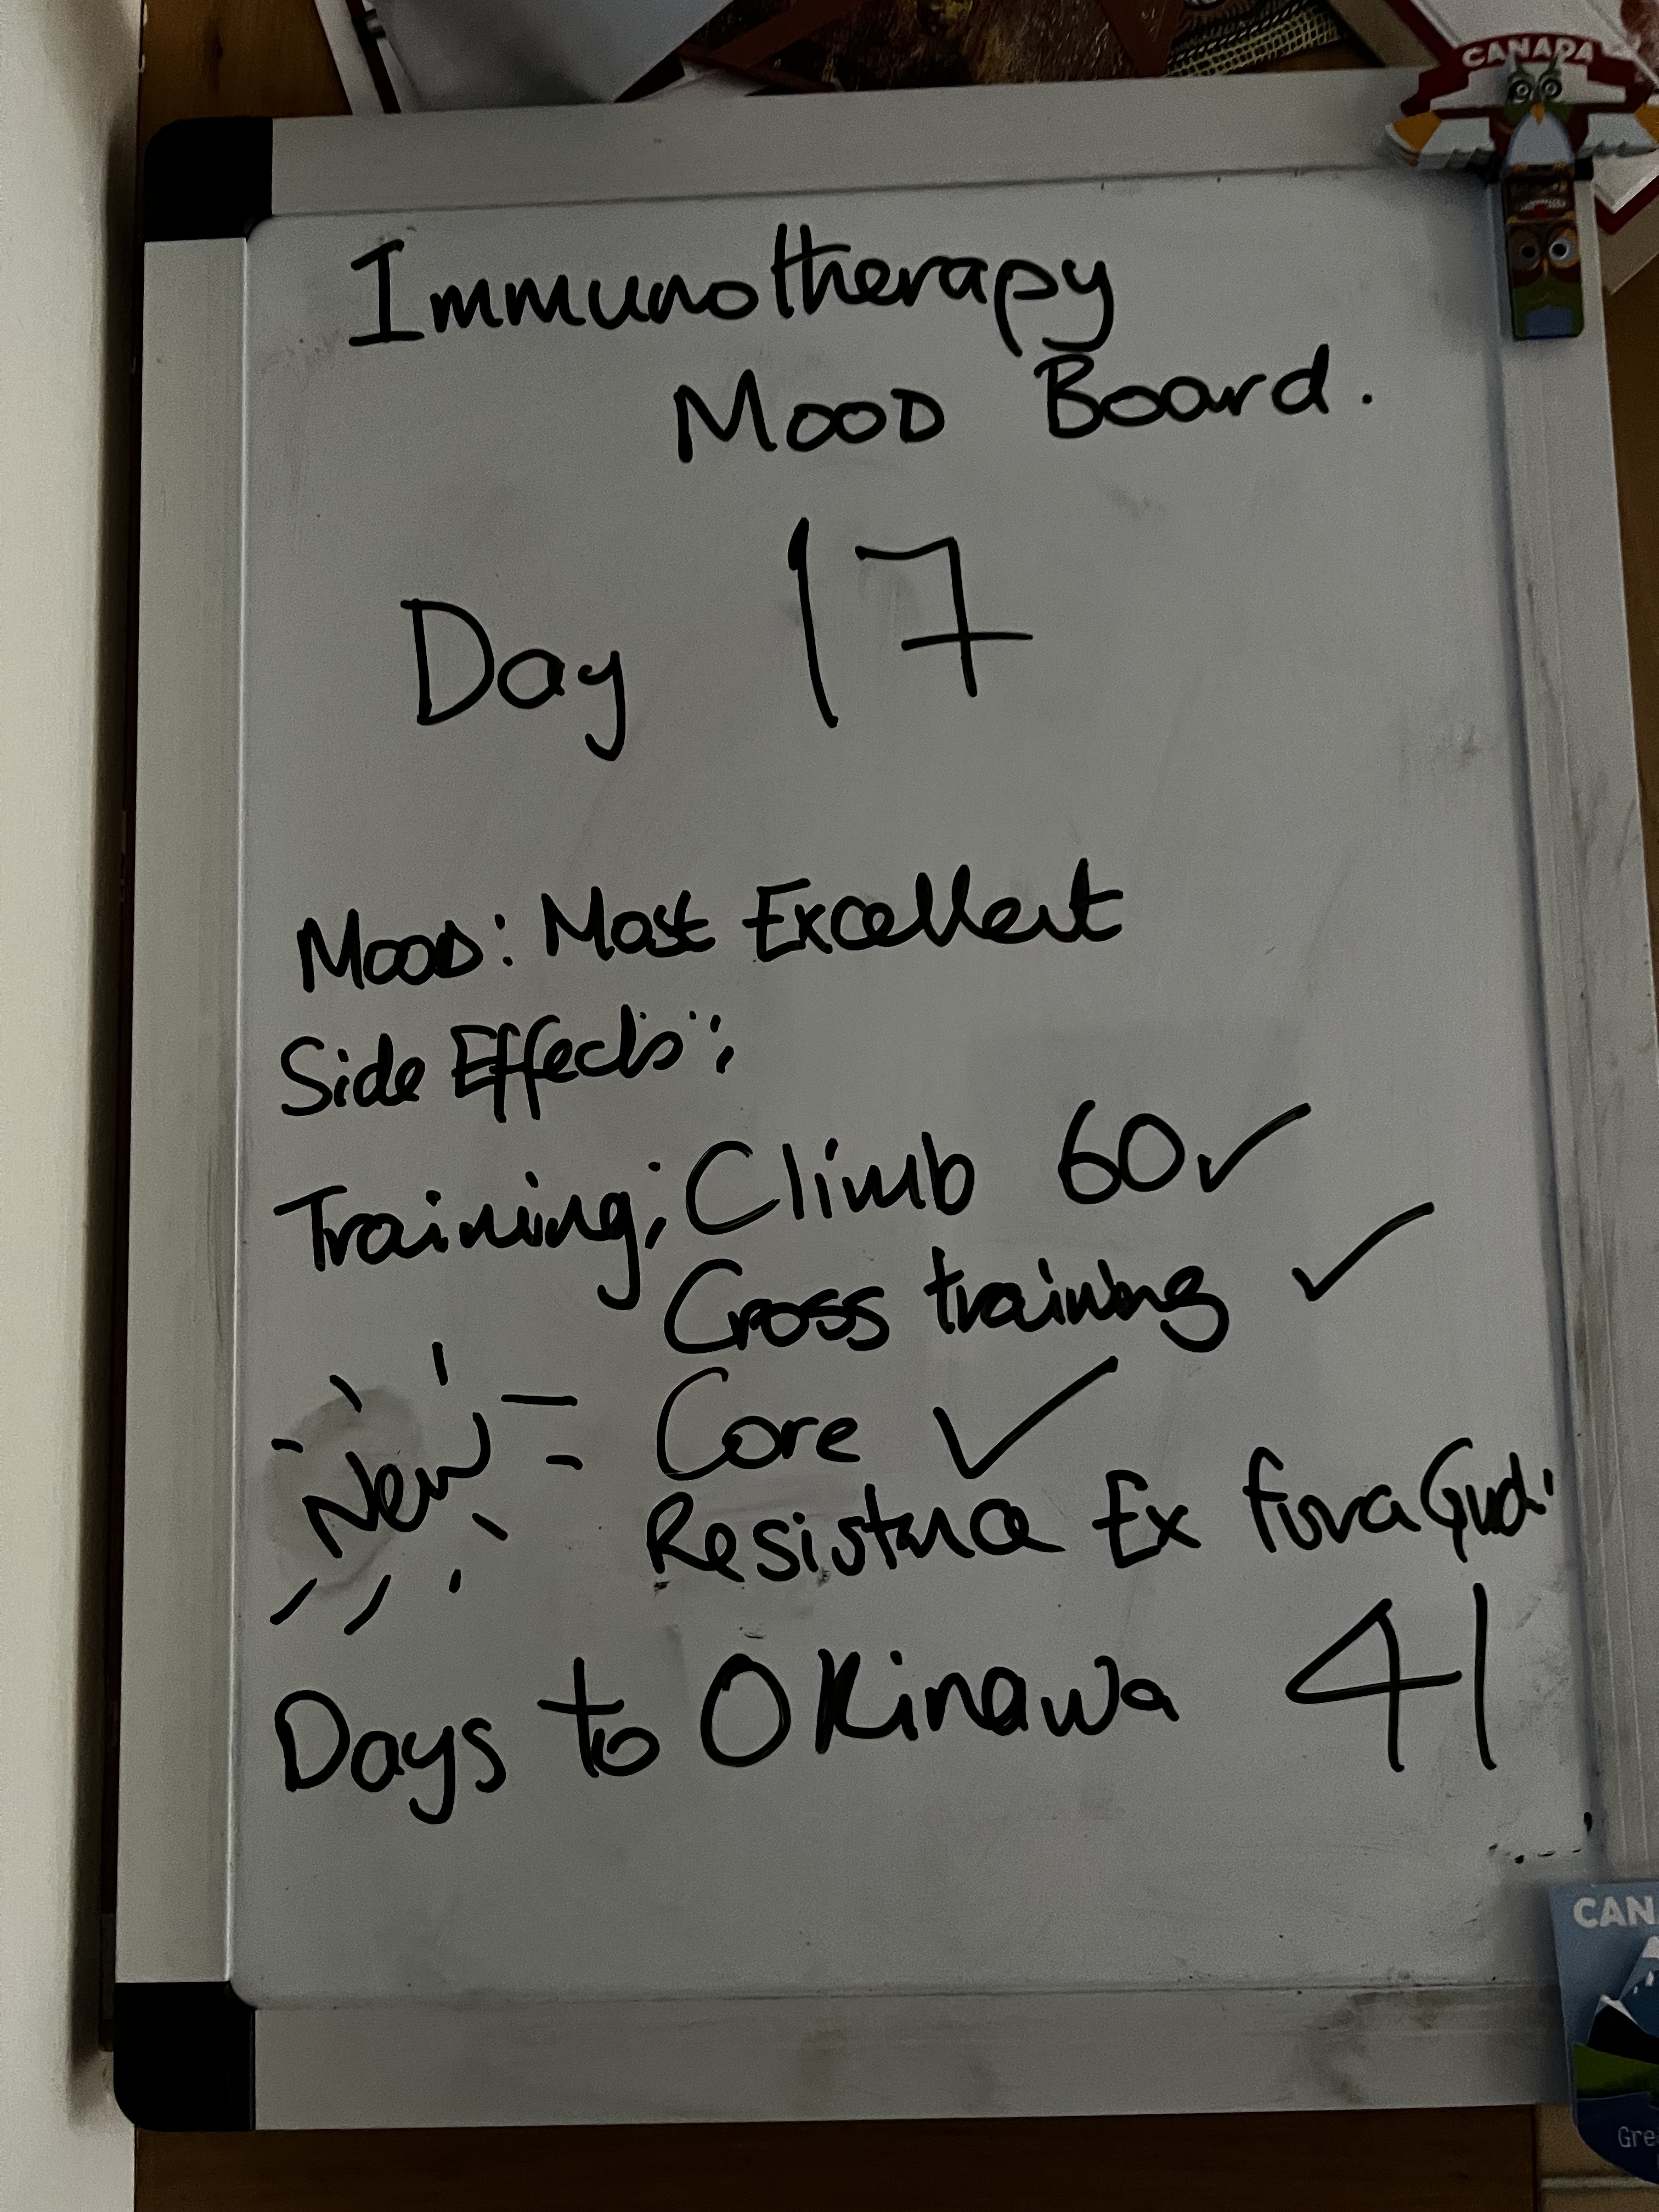 CANADA
Immunotherapy
Mood Board.
Day 17
Mood: Most Excellent
Side Effects:
Training; Climb 60✓
Cross training ✓
New Core ✓
Ex
Days to Okinawa 41
CAN
Gre